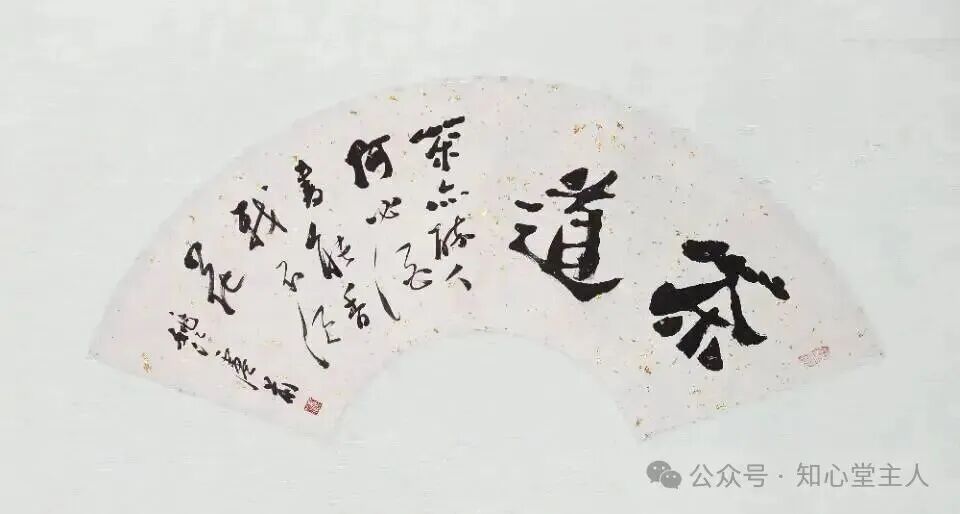 茶
道
茶亦醉人
何必酒
書能香
我不須
花
公众号 · 知心堂主人